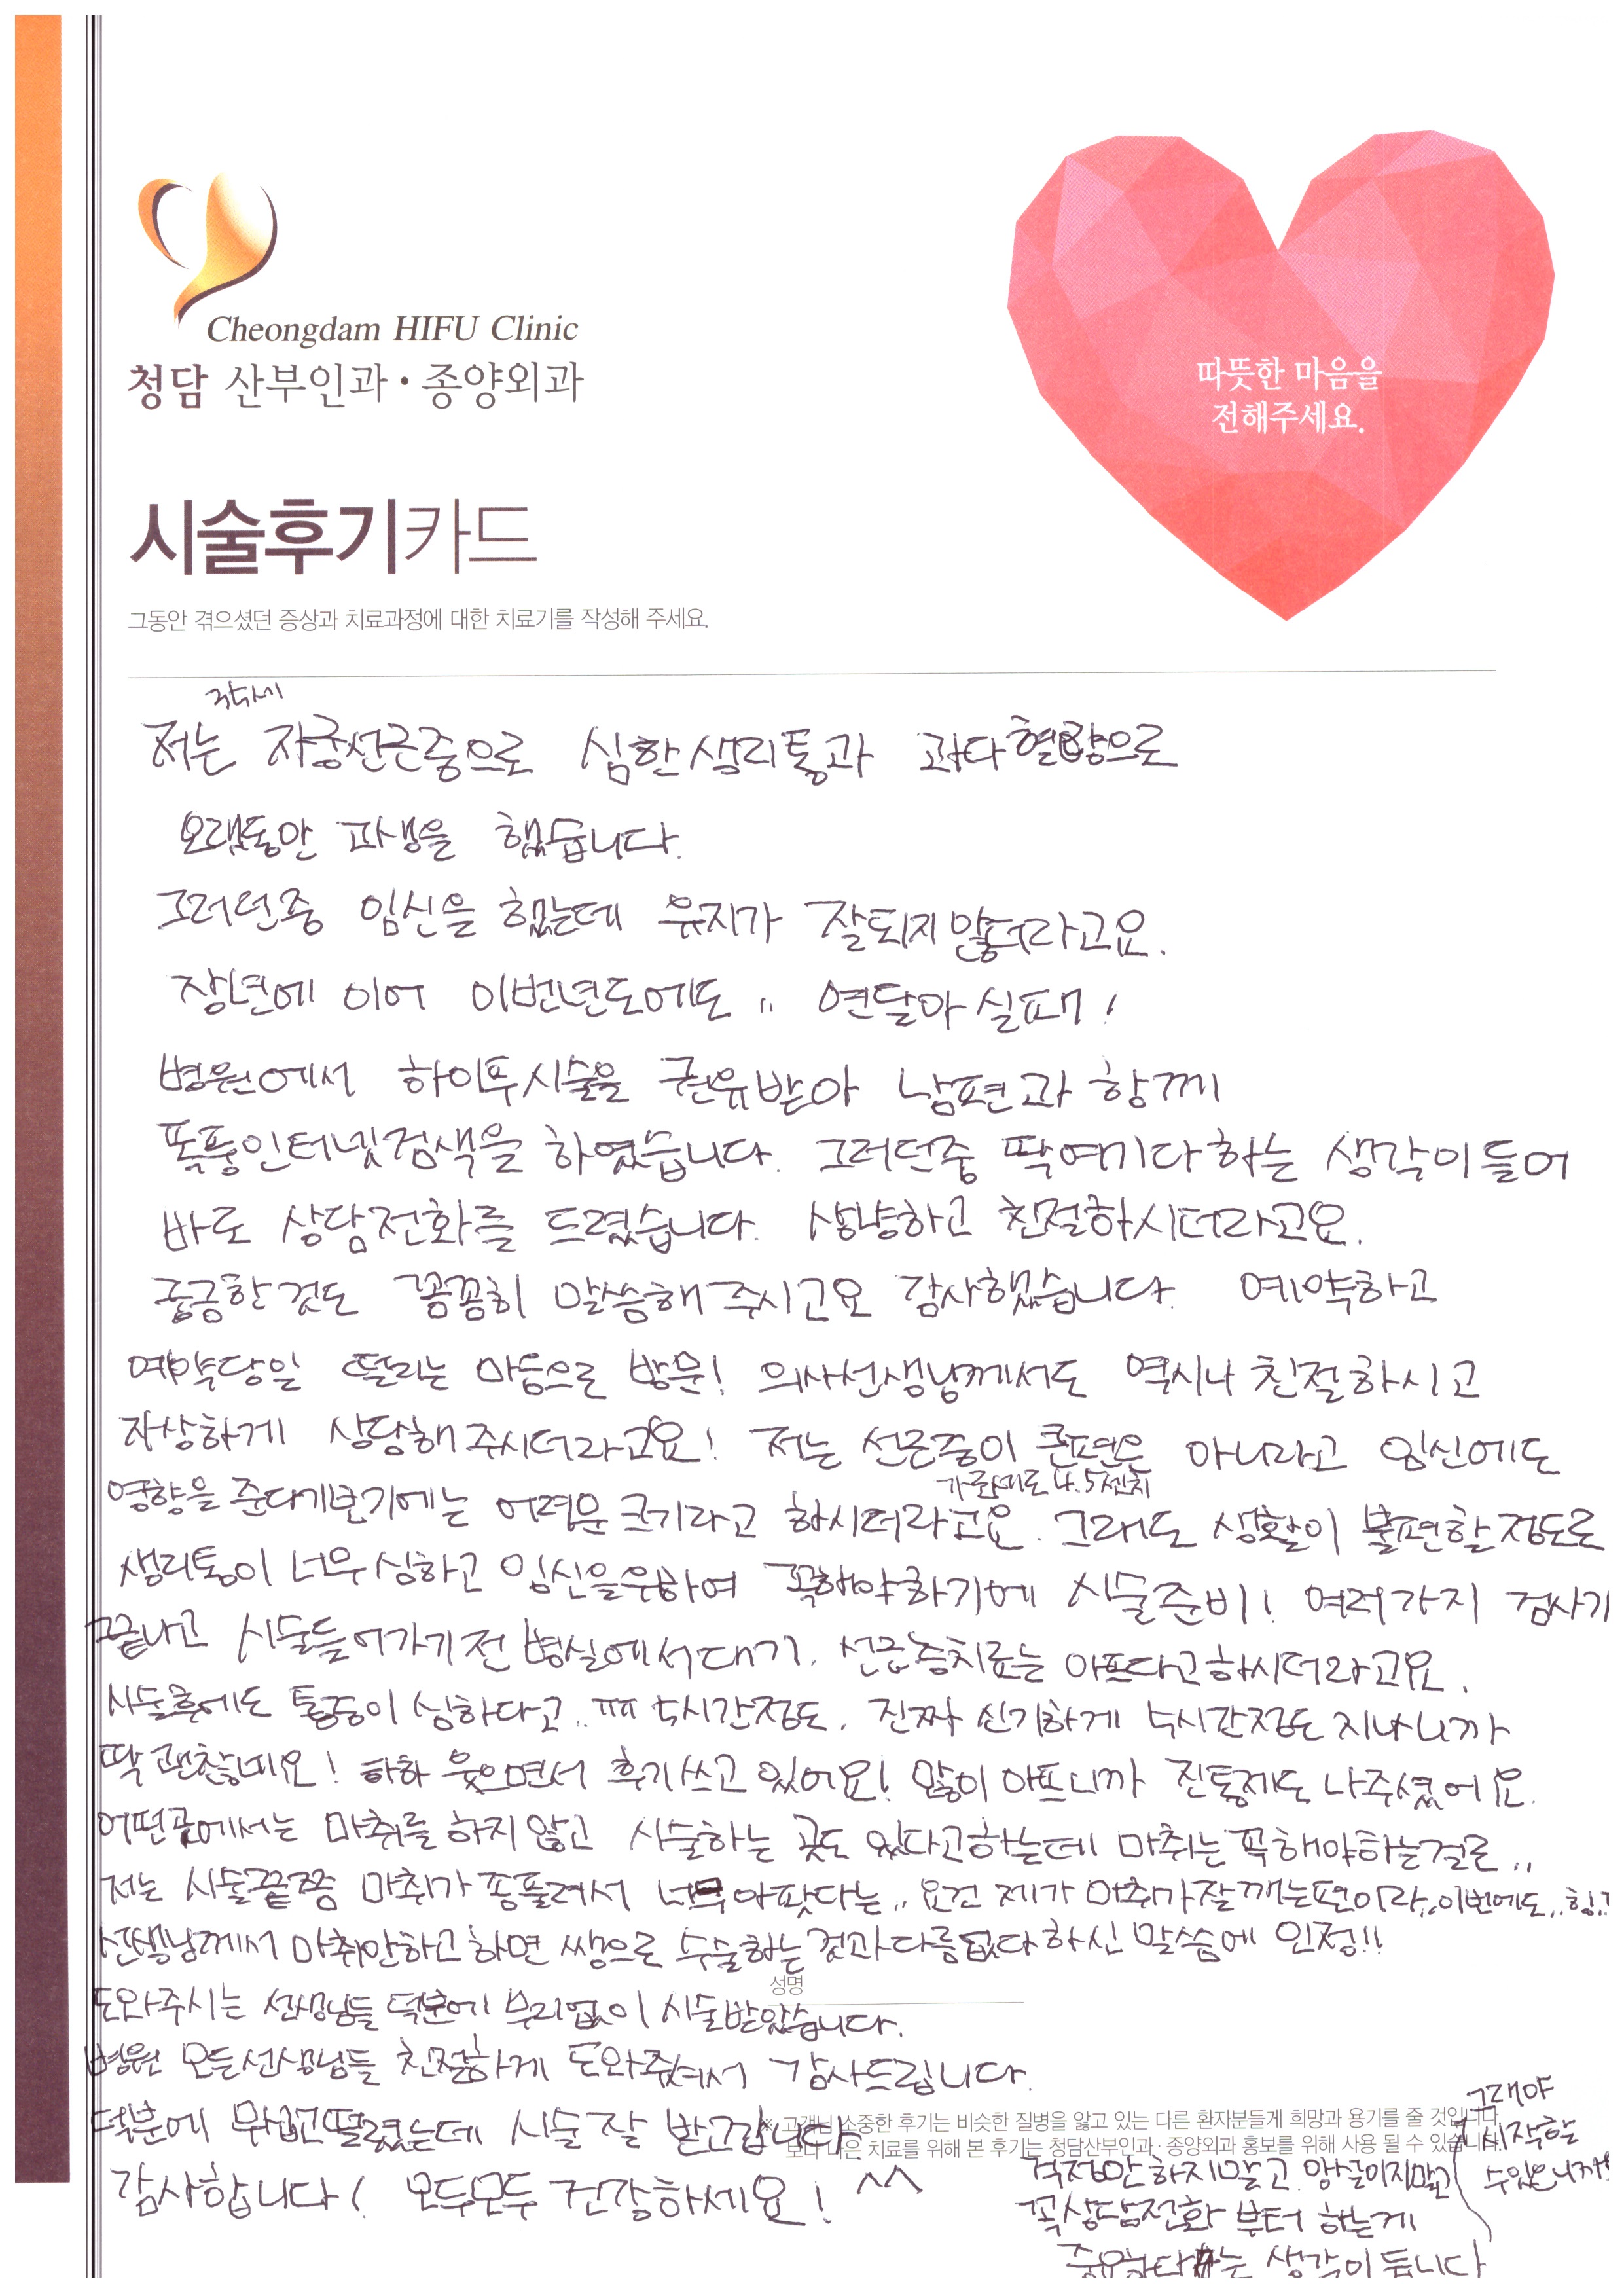 Cheongdam HIFU Clinic
청담 산부인과·종양외과
따뜻한 마음을
전해주세요.
시술후기카드
그동안 겪으셨던 증상과 치료과정에 대한 치료기를 작성해 주세요.
저는 자궁선근증으로 심한생리통과 과다혈량으로
오랫동안 고생을 했습니다.
그러던중 임신을 했는데 유지가 잘되지않더라고요.
작년에 이어 이번년도에도.. 연달아실패!
병원에서 하이푸시술을 권유받아 남편과 함께
폭풍인터넷검색을 하였습니다. 그러던중 딱여기다하는 생각이들어
바로 상담전화를 드렸습니다. 상냥하고 친절하시더라고요.
궁금한것도 꼼꼼히 말씀해주시고요 감사했습니다. 예약하고
예약당일 떨리는 마음으로 방문! 의사선생님께서도 역시나 친절하시고
자상하게 상담해주시더라고요! 저는 선근증이 큰편은 아니라고 임신에도
영향을 준다기보기에는 어려운크기라고 하시더라고요. 그래도 생활이 불편할정도로
가로세로4.5센치
생리통이 너무심하고 임신을위하여 꼭해야하기에 시술준비! 여러가지 검사가
끝나고 시술들어가기전 병실에서대기. 선근증치료는 아프다고하시더라고요.
시술후에도 통증이 심하다고..ㅠㅠ 4시간정도. 진짜 신기하게 4시간정도 지나니까
딱괜찮네요! 하하 웃으면서 후기쓰고 있어요! 많이 아프니까 진통제도 놔주셨어요.
어떤곳에서는 마취를 하지않고 시술하는 곳도 있다고하는데 마취는꼭해야하는걸로..
저는 시술끝쯤 마취가 좀풀려서 너무아팠다는.. 요건 제가 마취가잘깨는편이라..이번에도..힝..
선생님께서 마취안하고하면 쌩으로 수술하는 것과다름없다하신 말씀에 인정!!
성명
도와주시는 선생님들 덕분에 무리없이 시술받았습니다.
병원 모든선생님들 친절하게 도와주셔서 감사드립니다.
덕분에 무섭고떨렸는데 시술잘 받고갑니다.
※ 고객님 소중한 후기는 비슷한 질병을 앓고 있는 다른 환자분들게 희망과 용기를 줄 것입니다.
보다 나은 치료를 위해 본 후기는 청담산부인과·종양외과 홍보를 위해 사용 될 수 있습니다.
감사합니다! 모두모두 건강하세요! ^^
걱정만하지말고 망설이지말고
그래야
시작할
수있으니까!
꼭상담전화 부터 하는게
중요하다는 생각이듭니다